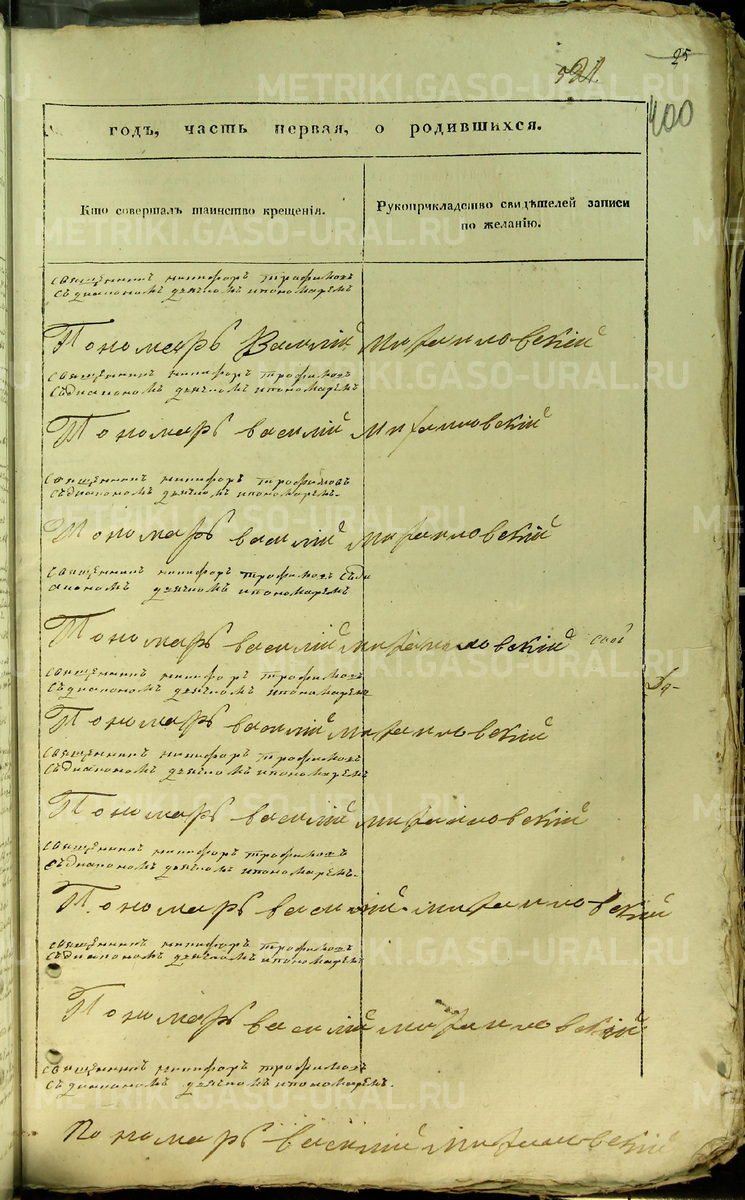 25
521.
400
годъ, часть первая, о родившихся.
Кто совершалъ таинство крещенія.
Рукоприкладство свидѣтелей записи по желанію.
священникъ никифоръ трофимовъ
съ диакономъ дьячкомъ и пономаремъ
Пономарь Василій михаиловскій
священникъ никифоръ трофимовъ
съ диакономъ дьячкомъ и пономаремъ
Пономарь василій михаиловскій
священникъ никифоръ трофимовъ
съ диакономъ дьячкомъ и пономаремъ.
Пономарь василій михаиловскій
священникъ никифоръ трофимовъ съ ди
акономъ дьячкомъ и пономаремъ
Пономарь василій михаиловскій
священникъ никифоръ трофимовъ
съ диакономъ дьячкомъ и пономаремъ
Пономарь василій михаиловскій
священникъ никифоръ трофимовъ
съ диакономъ дьячкомъ и пономаремъ
Пономарь василій михаиловскій
священникъ никифоръ трофимовъ
съ диакономъ дьячкомъ и пономаремъ.
Пономарь василій михаиловскій
священникъ никифоръ трофимовъ
съ диакономъ дьячкомъ и пономаремъ
Пономарь василій михаиловскій
священникъ никифоръ трофимовъ
съ диакономъ дьячкомъ и пономаремъ.
Пономарь василій михаиловскій
METRIKI.GASO-URAL.RU